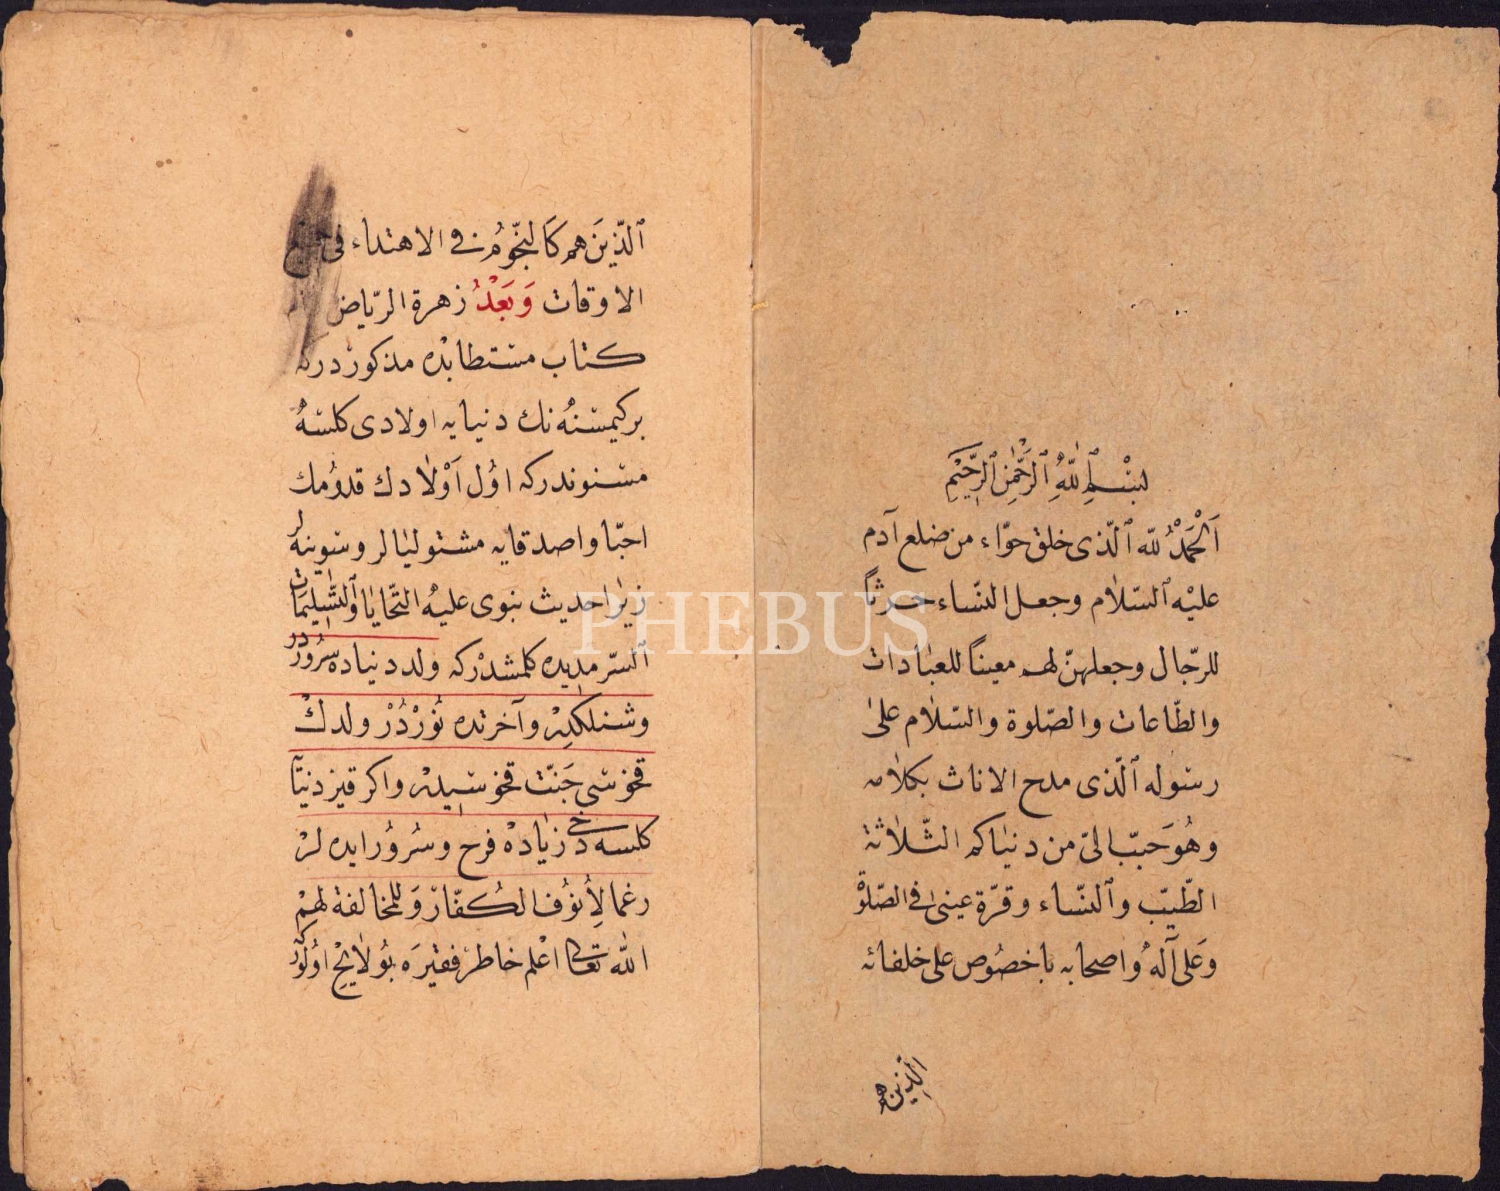 بِسْمِ ٱللّٰهِ ٱلرَّحْمٰنِ ٱلرَّحِيمِ
اَلْحَمْدُ للّٰه ٱلّذى خلق حوّاء من ضلع آدم
عليْه ٱلسّلام وجعل النّساء حرثاً
للرّجال وجعلهنّ لهم معيناً للعبادات
والطّاعات والصّلوة والسّلام علىٰ
رسوله ٱلّذى مدح الاناث بكلامه
وهُوَ حَبّبَ الىّ من دنياكم الثّلاثة
الطّيب وٱلنّساء وقرّة عينىٰ فى الصّلوة
وَعَلى آلهُ واصحابه باخصُوص على خلفائه
ٱلّذين هم
ٱلّذيَن هم كَالنّجُومُ فى الاهتداء فى
الاوقات وَبَعْدُ زهرة الرّياض
كتاب مستطابده مذكوردركه
بركيمسنهُ نك دنيايه اولادى كلسهُ
مسنوندركه اوُل اَوْلادك قدوُمك
احبّا واصدقايه مشتوليالر وسَوينهلر
زيرا حديث نبوى عليهُ التّحايا وٱلتّسليمات
ٱلسّرمديده كلمشدْركه ولد دنياده سرُوردر
وشنلكدِرْ وآخرتده نُورْدُرْ ولدكْ
قخوسى جَنّت قخوسيدرْ واكر قيز دنيآ
كلسه دخى زيادهْ فرح وسرُورايده لرْ
رغما لِأنوُف الكُفّارْ وَللمخالفة لهمْ
اللّٰه تعالى اعْلم خاطر فقيرَه بُولايحْ اوُلوركه
PHEBUS